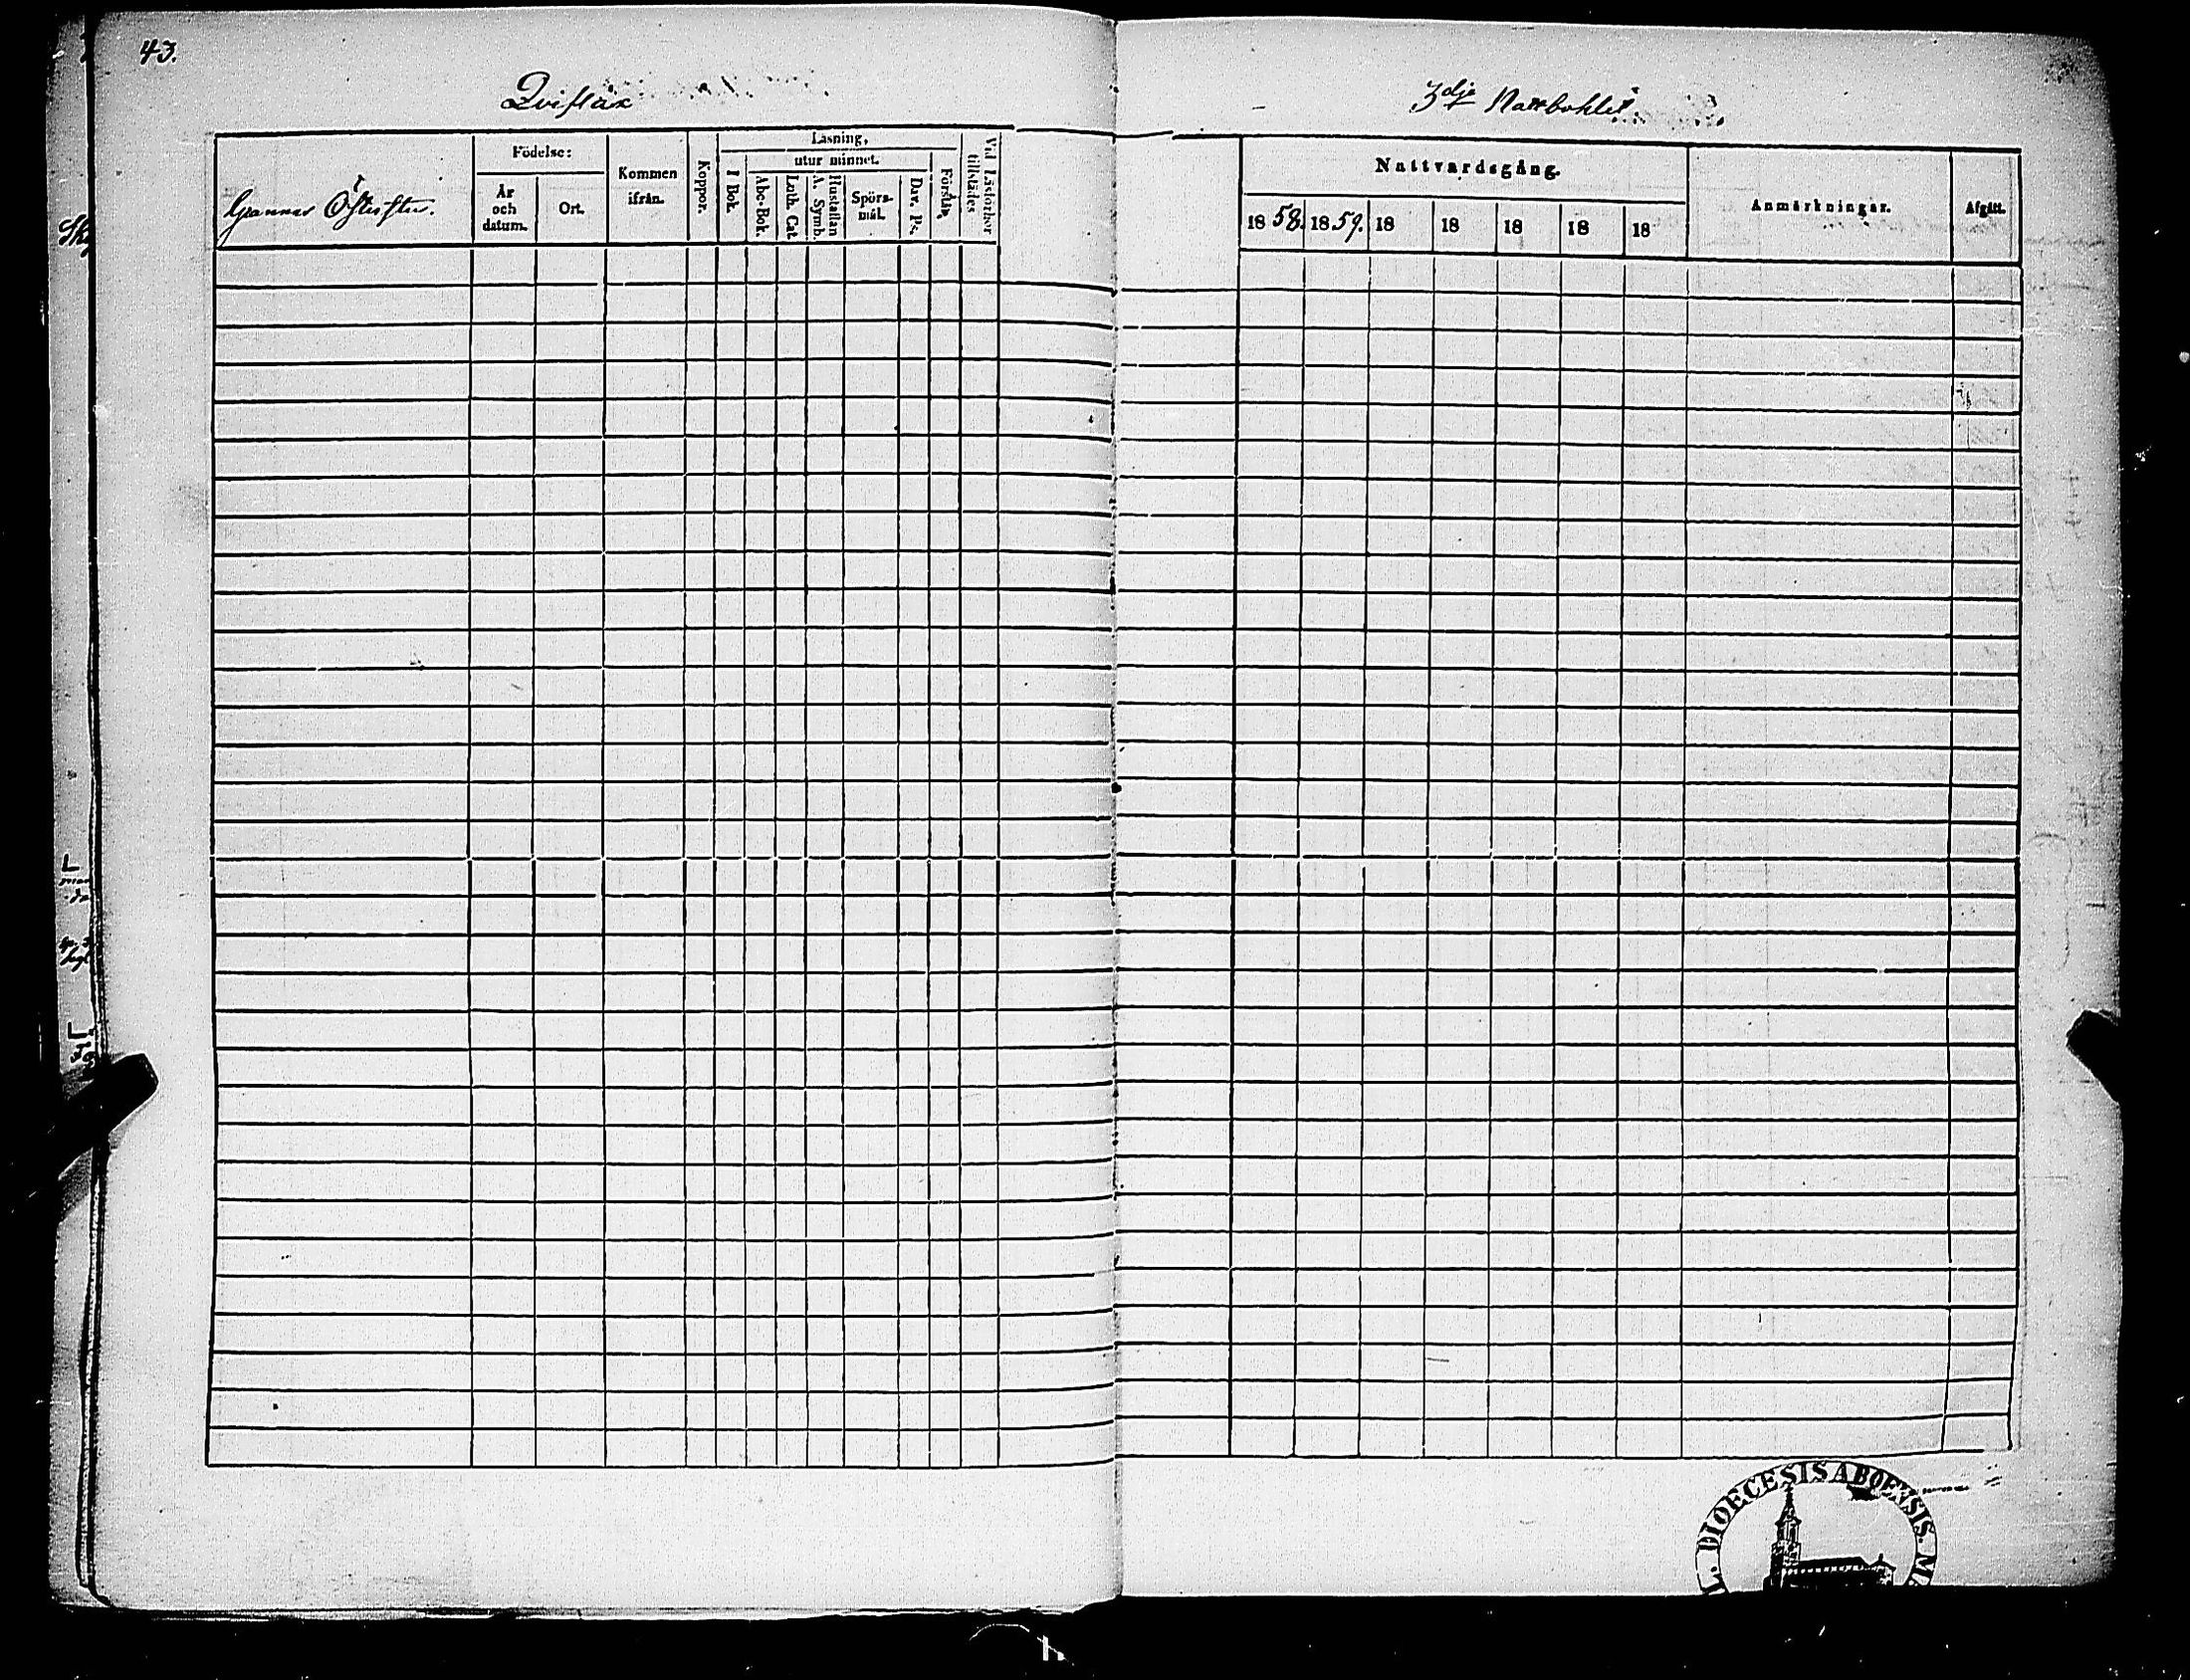 43.
Qviflax
3dje Matboklet.
Gammel Ofterfter.
Födelse:
År och datum.
Ort.
Kommen ifrån.
Koppor.
Läsning,
I Bok.
utur minnet.
Abc-Bok.
Luth. Cat.
Hustaflan A. Symb.
Spörs-mål.
Dav. Ps.
Förstår,
Vid Läsförhör tillstädes
Nattvardsgång.
18 58. 18 59. 18 18 18 18 18
Anmärkningar.
Afgått.
DIOECESIS ABOENSIS.